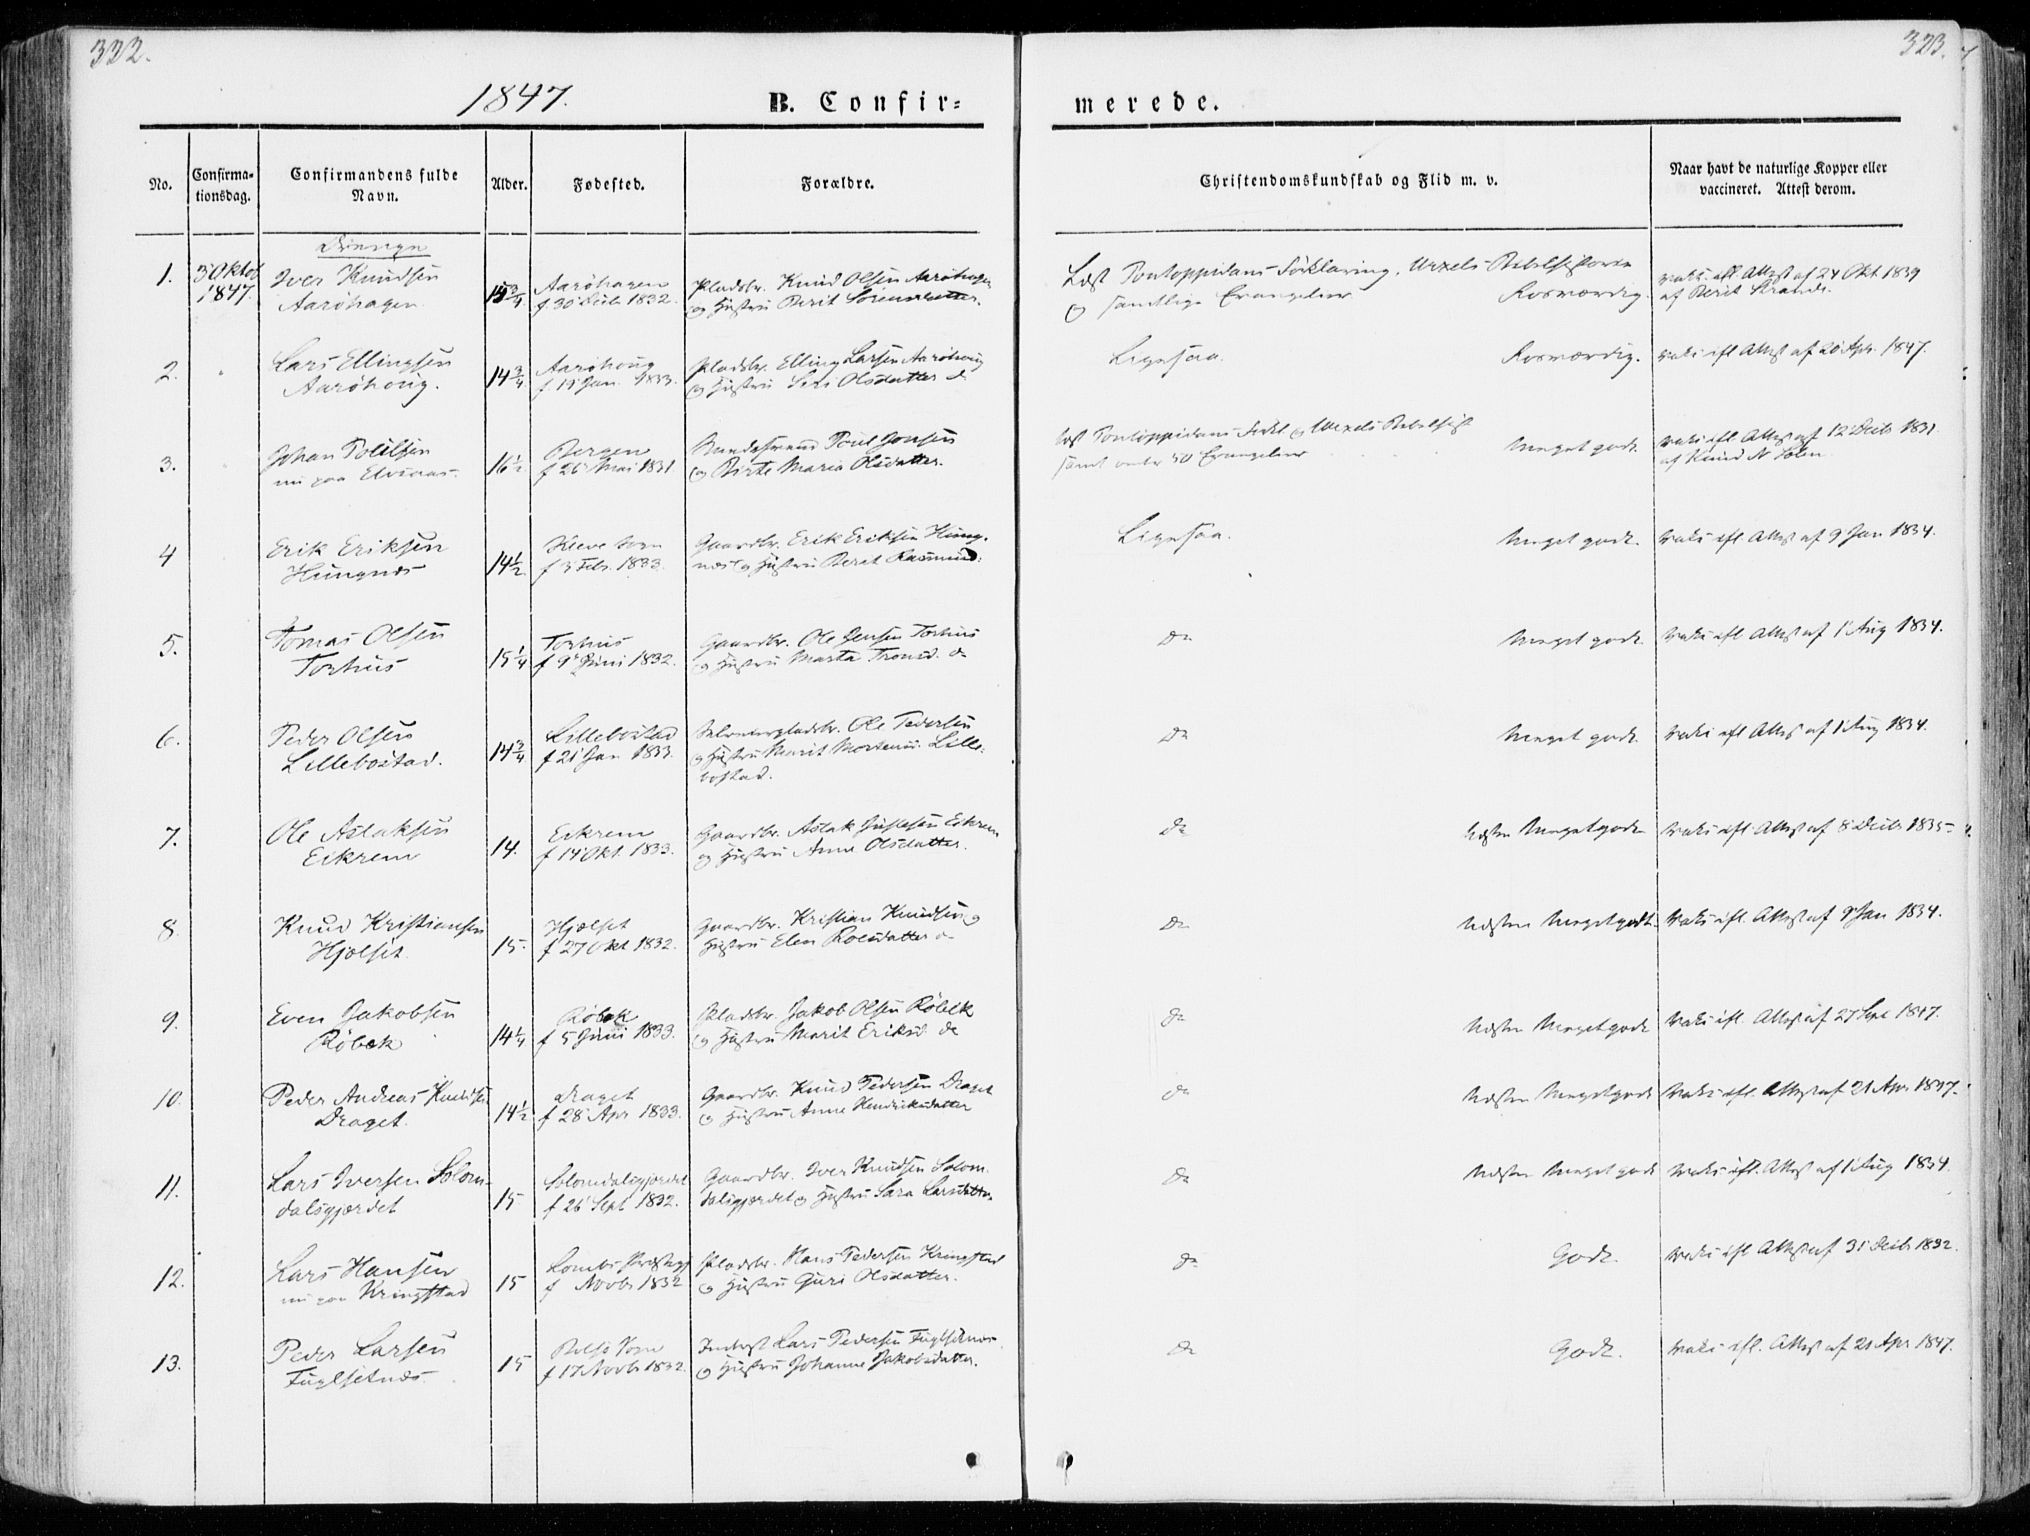 332.
323.
1847.
B. Confir=
merede.
No.
Confirma=
tionsdag.
Confirmandens fulde
Navn.
Alder.
Fødested.
Forældre.
Christendomskundskab og Flid m. v.
Naar havt de naturlige Kopper eller
vaccineret. Attest derom.
Drenge
1.
3 Oktob
1847.
Iver Knudsen
Aarøhagen
15 3/4
Aarøhagen
f. 30 1832.
Pladsbr. Knud Olsen Aarøhagen
og Hustru Berit Sørensdatter.
Læst Pontoppidans Forklaring, Wexels Bibelhistorie
og samtlige Evangelier
Rosværdig.
vaks. ifl. Attest af 24 Okt 1839
af Berit Strande.
2.
Lars Ellingsen
Aarøhoug.
14 3/4
Aarøhoug
f 11 Jan. 1833.
Pladsbr. Elling Larsen Aarøhoug
og Hustru Siri Olsdatter d
Ligesaa.
Rosværdig.
vaks ifl Attest af 20 Apr. 1847.
3.
Johan Poulsen
nu paa
16 1/2
Bergen
f 26 Mai 1831.
Poul Jonsen
og Birte Maria Olsdatter.
læst Pontoppidans Forkl og Wexels Bibelhist
samt 50 Evangelier
Meget godt.
vaks ifl. Attest af 12 Decbr 1831.
af Knud N
4
Erik Eriksen
Hungnæs
14 1/2
Kleve Sogn
f 3 Feb. 1833.
Gaardbr. Erik Eriksen Hung-
næs og Hustru Berit Rasmusd.
Ligesaa.
Meget godt.
Vaks ifl. Attest af 9 Jan 1834.
5.
Tomas Olsen
Torhus
15 1/4
Torhus
f 9 Juni 1832.
Gaardbr. Ole Jensen Torhus
og Hustru Marta Tronsd. d
Do
Meget godt.
Vaks ifl. Attest af 1 Aug 1834.
6.
Peder Olsen
Lillebostad.
14 3/4
Lillebostad
f 21 Jan 1833.
Ole Pedersen
og Hustru Marit Mortensd. Lille-
bostad.
Do
Meget godt.
Vaks ifl Attest af 1 Aug 1834.
7.
Ole Aslaksen
Eikrem
14.
Eikrem
f 14 Okt. 1833.
Gaardbr. Aslak Eikrem
og Hustru Anne Olsdatter.
Do
Næsten Meget godt
Vaks ifl. Attest af 8 Decbr 1835.
8.
Knud Kristiansen
Hjælset
15.
Hjælset
f 27 Okt 1832.
Gaardbr. Kristian Knudsen og
Hustru Elen Roesdatter d
Do
Næsten Meget godt.
Vaks ifl. Attest af 9 Jan 1834.
9.
Even Jakobsen
Røbek
14 1/4
Røbek
f 5 Juni 1833.
Pladsbr. Jakob Olsen Røbek
og Hustru Marit Eriksd. do
Do
Næsten Meget godt
Vaks ifl. Attest af 27 Sept 1847.
10.
Peder Andreas Knudsen
Draget.
14 1/2
Draget
f 28 Apr 1833.
Gaardbr. Knud Pedersen Draget
og Hustru Anne Hendriksdatter
Do
Næsten Meget godt
Vaks ifl. Attest af 21 Apr 1847.
11.
Lars Iversen Solom-
dalsgjærdet
15
Solomdalsgjærdet
f 26 Sept 1832.
Gaardbr. Iver Knudsen Solom-
dalsgjærdet og Hustru Sara Larsdatter
Do
Næsten Meget godt
Vaks ifl. Attest af 1 Aug 1834.
12.
Lars Hansen
nu paa Kringstad
15
Lombs Præstegj
f Novbr 1832
Pladsbr. Hans Pedersen Kringstad
og Hustru Guri Olsdatter.
Do
Godt.
Vaks ifl Attest af 31 Decbr 1832.
13.
Peder Larsen
Fuglsetnæs.
15
Bolsø Sogn
f 17 Novbr 1832.
Inderst Lars Pedersen Fuglsetnæs
og Hustru Johanne Jakobsdatter.
Do
Godt.
Vaks ifl. Attest af 21 Apr 1847.